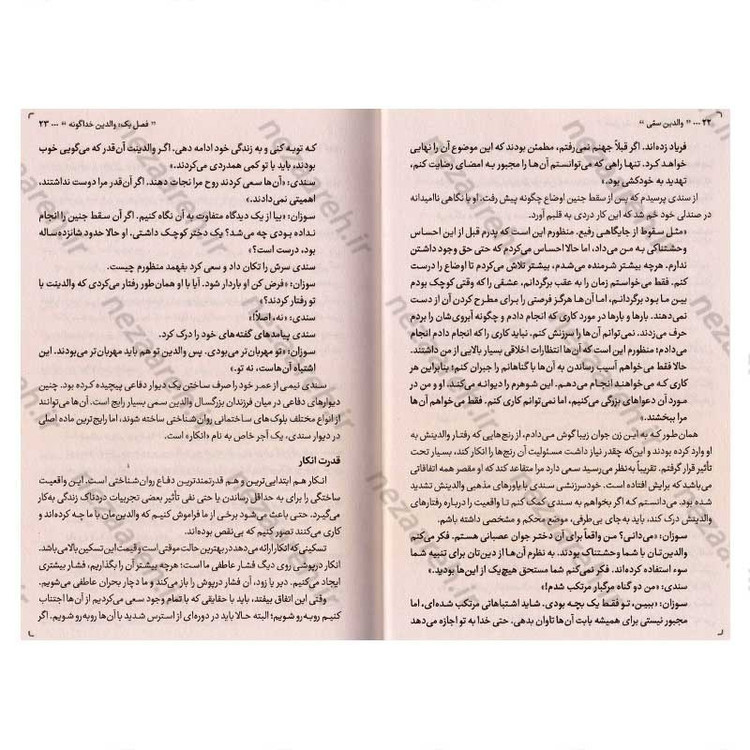 ۲۲ ... " والدین سمّی "
فریاد زده‌اند. اگر قبلاً جهنم نمی‌رفتم، مطمئن بودند که این موضوع آن را نهایی
خواهد کرد. تنها راهی که می‌توانستم آن‌ها را مجبور به امضای رضایت کنم،
تهدید به خودکشی بود.»
از سندی پرسیدم که پس از سقط جنین اوضاع چگونه پیش رفت. او با نگاهی ناامیدانه
در صندلی خود خم شد که این کار دردی به قلبم آورد.
«مثل سقوط از جایگاهی رفیع. منظورم این است که پدرم قبل از این احساس
وحشتناکی به من می‌داد، اما حالا احساس می‌کردم که حتی حق وجود داشتن
ندارم. هرچه بیشتر شرمنده می‌شدم، بیشتر تلاش می‌کردم تا اوضاع را درست
کنم. فقط می‌خواستم زمان را به عقب برگردانم، عشقی را که وقتی کوچک بودم
بین ما بود برگردانم، اما آن‌ها هرگز فرصتی را برای مطرح کردن آن از دست
نمی‌دهند. بارها و بارها در مورد کاری که انجام دادم و چگونه آبروی‌شان را بردم
حرف می‌زدند. نمی‌توانم آن‌ها را سرزنش کنم. نباید کاری را که انجام دادم انجام
می‌دادم؛ منظورم این است که آن‌ها انتظارات اخلاقی بسیار بالایی از من داشتند.
حالا فقط می‌خواهم آسیب رساندن به آن‌ها با گناهانم را جبران کنم؛ بنابراین هر
کاری که می‌خواهند انجام می‌دهم. این شوهرم را دیوانه می‌کند. او و من در
مورد آن دعواهای بزرگی می‌کنیم، اما نمی‌توانم کاری کنم. فقط می‌خواهم آن‌ها
مرا ببخشند.»
همان‌طور که به این زن جوان زیبا گوش می‌دادم، از رنج‌هایی که رفتار والدینش به
او وارد کرده بودند و این‌که چقدر نیاز داشت مسئولیت آن رنج‌ها را انکار کند، بسیار تحت
تأثیر قرار گرفتم. تقریباً به‌نظر می‌رسید سعی دارد مرا متقاعد کند که او مقصر همه اتفاقاتی
می‌باشد که برایش افتاده است. خودسرزنشی سندی با باورهای مذهبی والدینش تشدید
شده بود. می‌دانستم که اگر بخواهم به سندی کمک کنم تا واقعیت را درباره رفتارهای
والدینش درک کند، باید به‌جای بی‌طرفی، موضع محکم و مشخصی داشته باشم.
سوزان: «می‌دانی؟ من واقعاً برای آن دختر جوان عصبانی هستم. فکر می‌کنم
والدین‌تان با شما وحشتناک بودند. به نظرم آن‌ها از دین‌تان برای تنبیه شما
سوء استفاده کرده‌اند. فکر نمی‌کنم شما مستحق هیچ‌یک از این‌ها بودید.»
سندی: «من دو گناه مرگبار مرتکب شدم!»
سوزان: «ببین، تو فقط یک بچه بودی. شاید اشتباهاتی مرتکب شده‌ای، اما
مجبور نیستی برای همیشه بابت آن‌ها تاوان بدهی. حتی خدا به تو اجازه می‌دهد
" فصل یک: والدین خداگونه " ... ۲۳
که توبه کنی و به زندگی خود ادامه دهی. اگر والدینت آن‌قدر که می‌گویی خوب
بودند، باید با تو کمی همدردی می‌کردند.»
سندی: «آن‌ها سعی کردند روح مرا نجات دهند. اگر آن‌قدر مرا دوست نداشتند،
اهمیتی نمی‌دادند.»
سوزان: «بیا از یک دیدگاه متفاوت به آن نگاه کنیم. اگر آن سقط جنین را انجام
نداده بودی چه می‌شد؟ یک دختر کوچک داشتی. او حالا حدود شانزده ساله
بود، درست است؟»
سندی سرش را تکان داد و سعی کرد بفهمد منظورم چیست.
سوزان: «فرض کن او باردار شود. آیا با او همان‌طور رفتار می‌کردی که والدینت با
تو رفتار کردند؟»
سندی: «نه، اصلاً!»
سندی پیامدهای گفته‌های خود را درک کرد.
سوزان: «تو مهربان‌تر می‌بودی. پس والدین تو هم باید مهربان‌تر می‌بودند. این
اشتباه آن‌هاست، نه تو.»
سندی نیمی از عمر خود را صرف ساختن یک دیوار دفاعی پیچیده کرده بود. چنین
دیوارهای دفاعی در میان فرزندان بزرگسال والدین سمی بسیار رایج است. آن‌ها می‌توانند
از انواع مختلف بلوک‌های ساختمانی روان‌شناختی ساخته شوند، اما رایج‌ترین ماده اصلی
در دیوار سندی، یک آجر خاص به نام «انکار» است.
قدرت انکار
انکار هم ابتدایی‌ترین و هم قدرتمندترین دفاع روان‌شناختی است. این واقعیت
ساختگی را برای به حداقل رساندن یا حتی نفی تأثیر بعضی تجربیات دردناک زندگی به‌کار
می‌گیرد. حتی باعث می‌شود برخی از ما فراموش کنیم که والدین‌مان با ما چه کرده‌اند و
کاری می‌کنند تصور کنیم که بی‌نقص بوده‌اند.
تسکینی که انکار ارائه می‌دهد در بهترین حالت موقتی است و قیمت این تسکین بالا می‌باشد.
انکار درپوشی روی دیگ فشار عاطفی ما است: هرچه بیشتر آن را بگذاریم، فشار بیشتری
ایجاد می‌کنیم. دیر یا زود، آن فشار درپوش را باز می‌کند و ما دچار بحران عاطفی می‌شویم.
وقتی این اتفاق بیفتد، باید با حقایقی که با تمام وجود سعی می‌کردیم از آن‌ها اجتناب
کنیم روبه‌رو شویم؛ البته حالا باید در دوره‌ای از استرس شدید با آن‌ها روبه‌رو شویم. اگر
nezaareh.ir